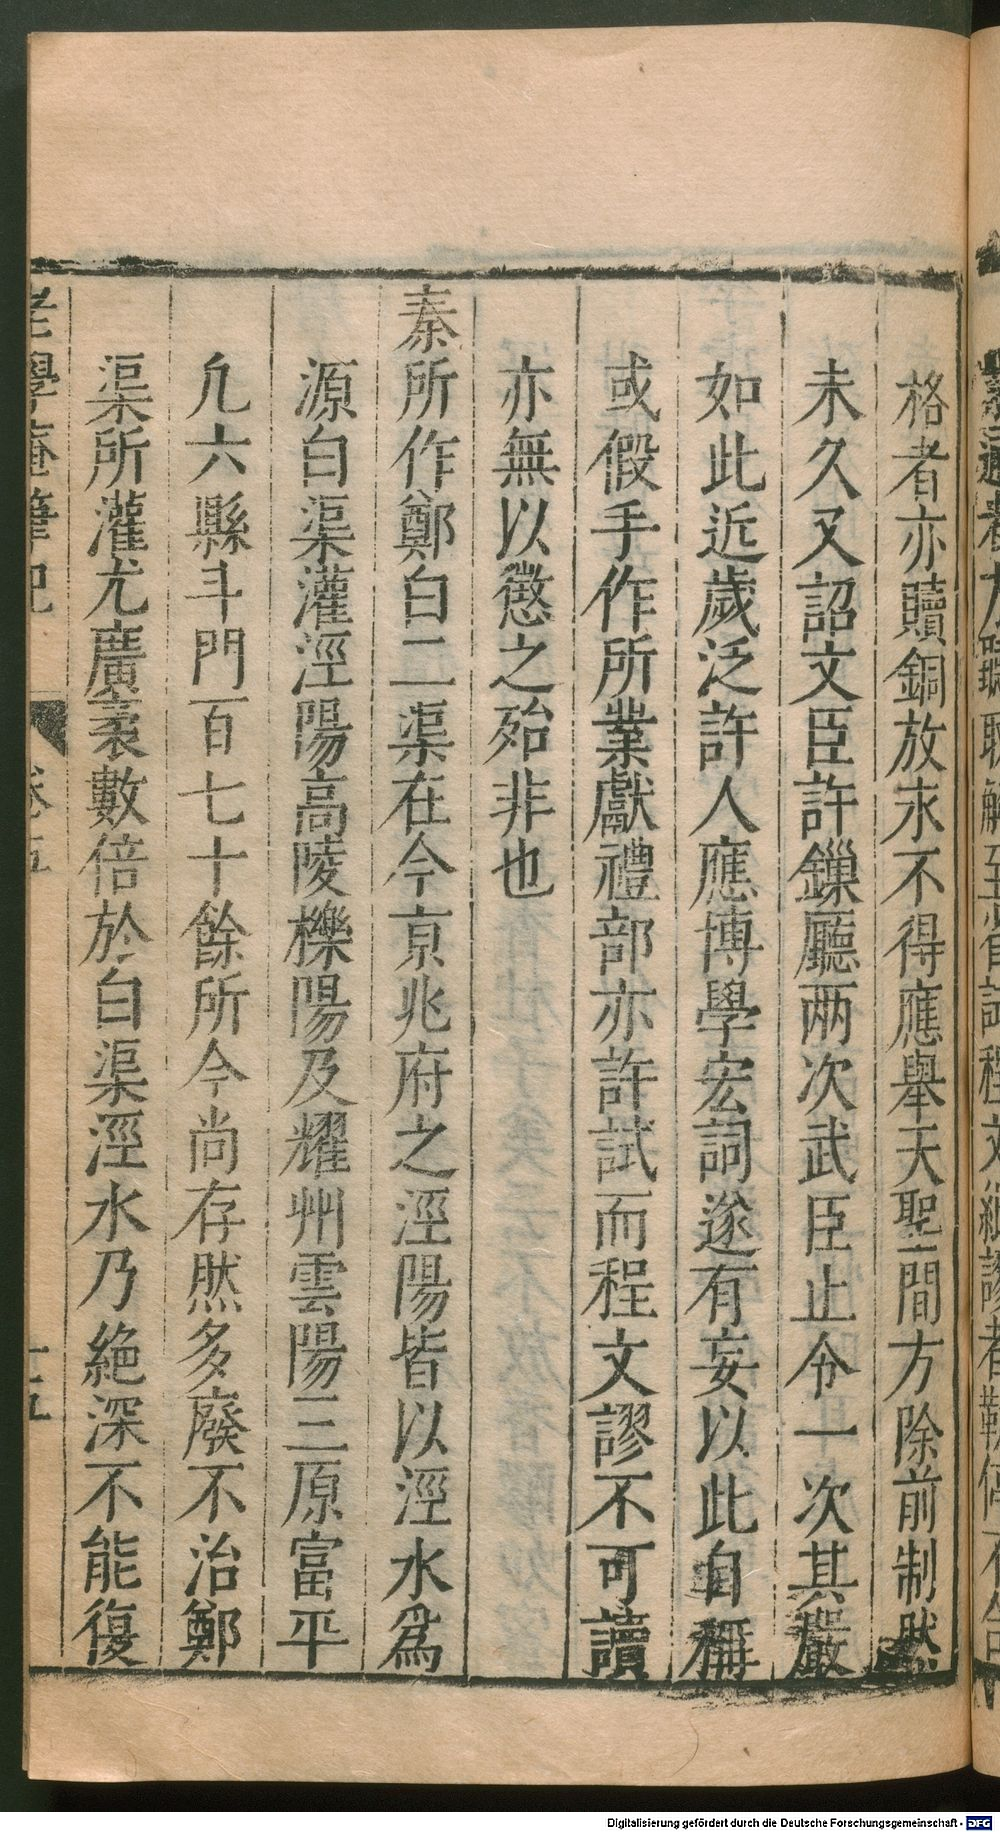 格者亦贖銅放永不得應舉天聖間方除前制然
未久又詔文臣許鏁廳兩次武臣止令一次其嚴
如此近歲泛許人應博學宏詞遂有妄以此自稱
或假手作所業獻禮部亦許試而程文謬不可讀
亦無以懲之殆非也
秦所作鄭白二渠在今亰兆府之涇陽皆以涇水爲
源白渠灌涇陽高陵櫟陽及耀州雲陽三原富平
凢六縣斗門百七十餘所今尚存然多廢不治鄭
渠所灌尤廣袤數倍於白渠涇水乃絶深不能復
老學庵筆記 卷五 十五
Digitalisierung gefördert durch die Deutsche Forschungsgemeinschaft - DFG